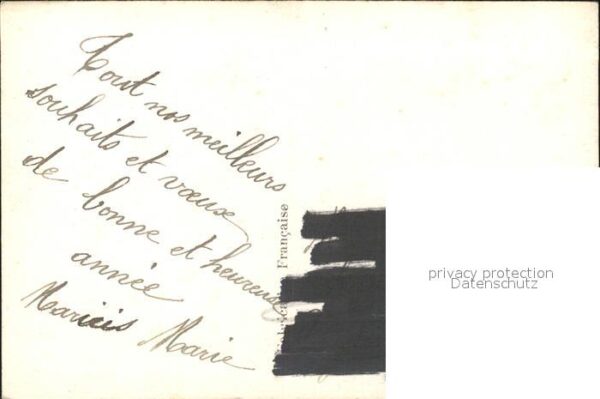 Tout nos meilleurs
souhaits et vœux
de bonne et heureuse
année
Marie
Française
privacy protection
Datenschutz